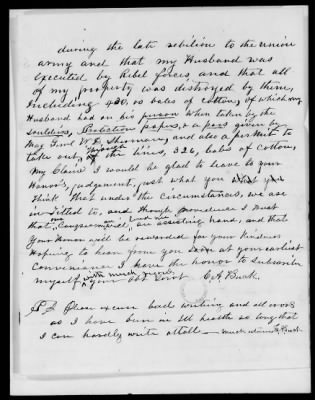 during the late rebition to the union
army and that my Husband was
executed by Rebel forces, and that all
of my property was distroyed by them,
Including 430,00 bales of cotton, of which my
Husband had on his person when taken by the
soulders, Protection papers, a pass given by
Maj Genl W.T. Sherman, and also a permit to
take out, through the lines, 326, bales of cotton,
My Claim I would be glad to leave to your
Honor's, judgement, just what you
think that under the circumstances, we are
in titled to, and though providence I trust
that our Congressmen, will lend us an assisting hand, and that
Your Honor will be rewarded for your kindness
Hoping to hear from you at your earliest
Convenience I have the honor to Subscribe
myself with much your obt Servt C. A. Buck.
P S Please excuse bad writing and all errors
as I have bin in Ill health so long that
I can hardly write attall